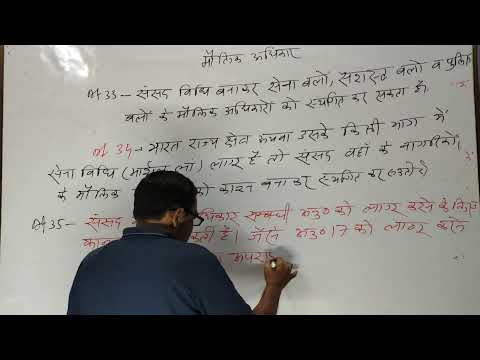 मौलिक अधिकार
Art 33 – संसद विधि बनाकर सेना बलों, सशस्त्र बलों व पुलिस
बलों के मौलिक अधिकारों को स्थगित कर सकता है।
Art 34 – भारत राज्य क्षेत्र अथवा उसके किसी भाग में
सेना विधि (मार्शल लॉ) लागू है तो संसद वहाँ के नागरिकों
के मौलिक को कानून बनाकर स्थगित कर
Art 35 – संसद अधिकार सम्बन्धी अनु० को लागू करने के लिए
है। जैसे अनु० 17 को लागू करने
अपरा